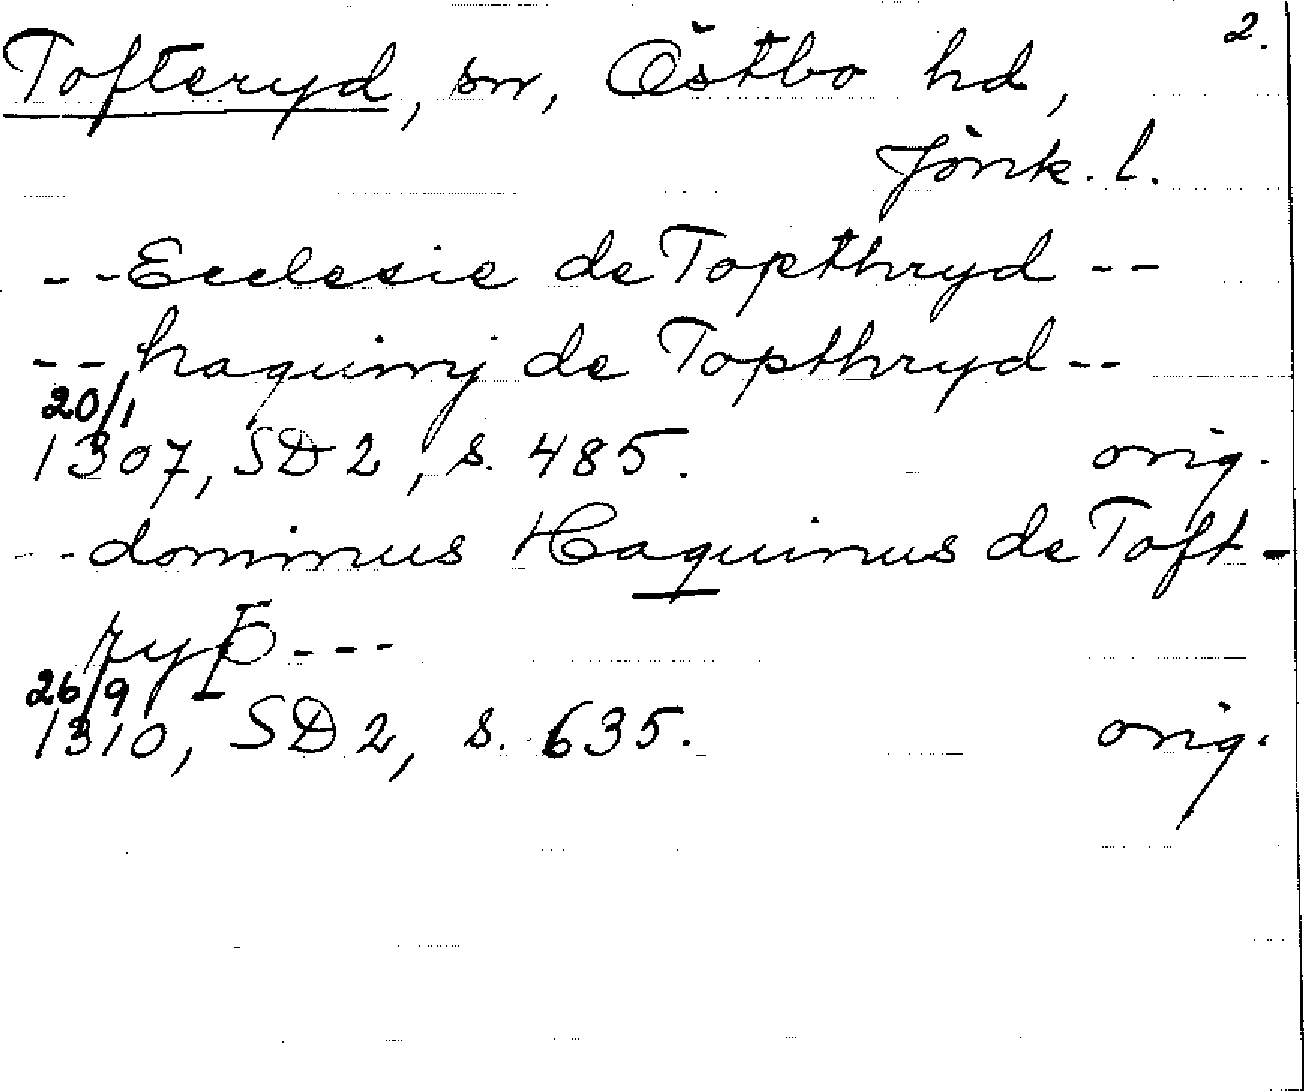 2.
Tofteryd, sn, Östbo hd,
Jönk. l.
--Ecclesie de Topthryd --
--haquinj de Topthryd--
20/1
1307, SD 2, s. 485. orig.
--dominus Haquinus de Toft-
ryþ---
26/9
1310, SD 2, s. 635. orig.